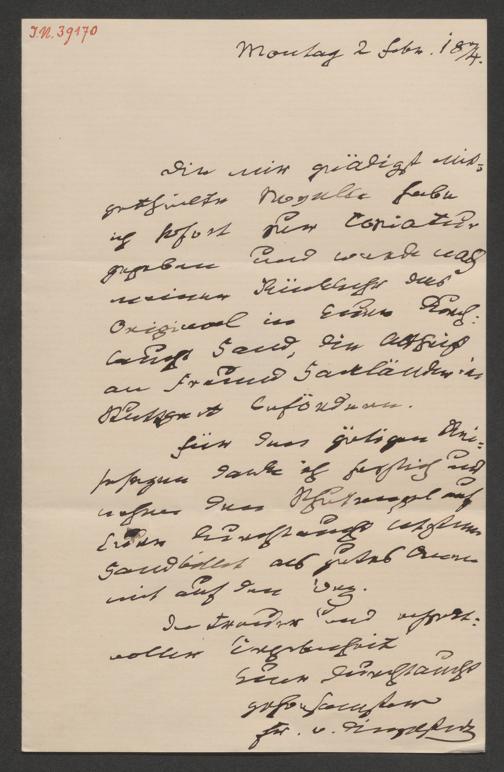 I.N. 39170
Montag 2 Febr. 1874.
Die mir gnädigst mit-
getheilte Novelle habe
ich sofort zur Copiatur
gegeben und werde nach
meiner Rückkehr das
Original in Euer Durch-
laucht Hand, die Abschrift
an Freund Hackländer in
Stuttgart befördern.
Für den gütigen
danke ich herzlich und
nehme den auf
Euer Durchlaucht
Handbillet als gutes Omen
mit auf den Weg.
In treuer und respekt-
voller Ergebenheit
Euer Durchlaucht
gehorsamster
Fr. v. Dingelstedt